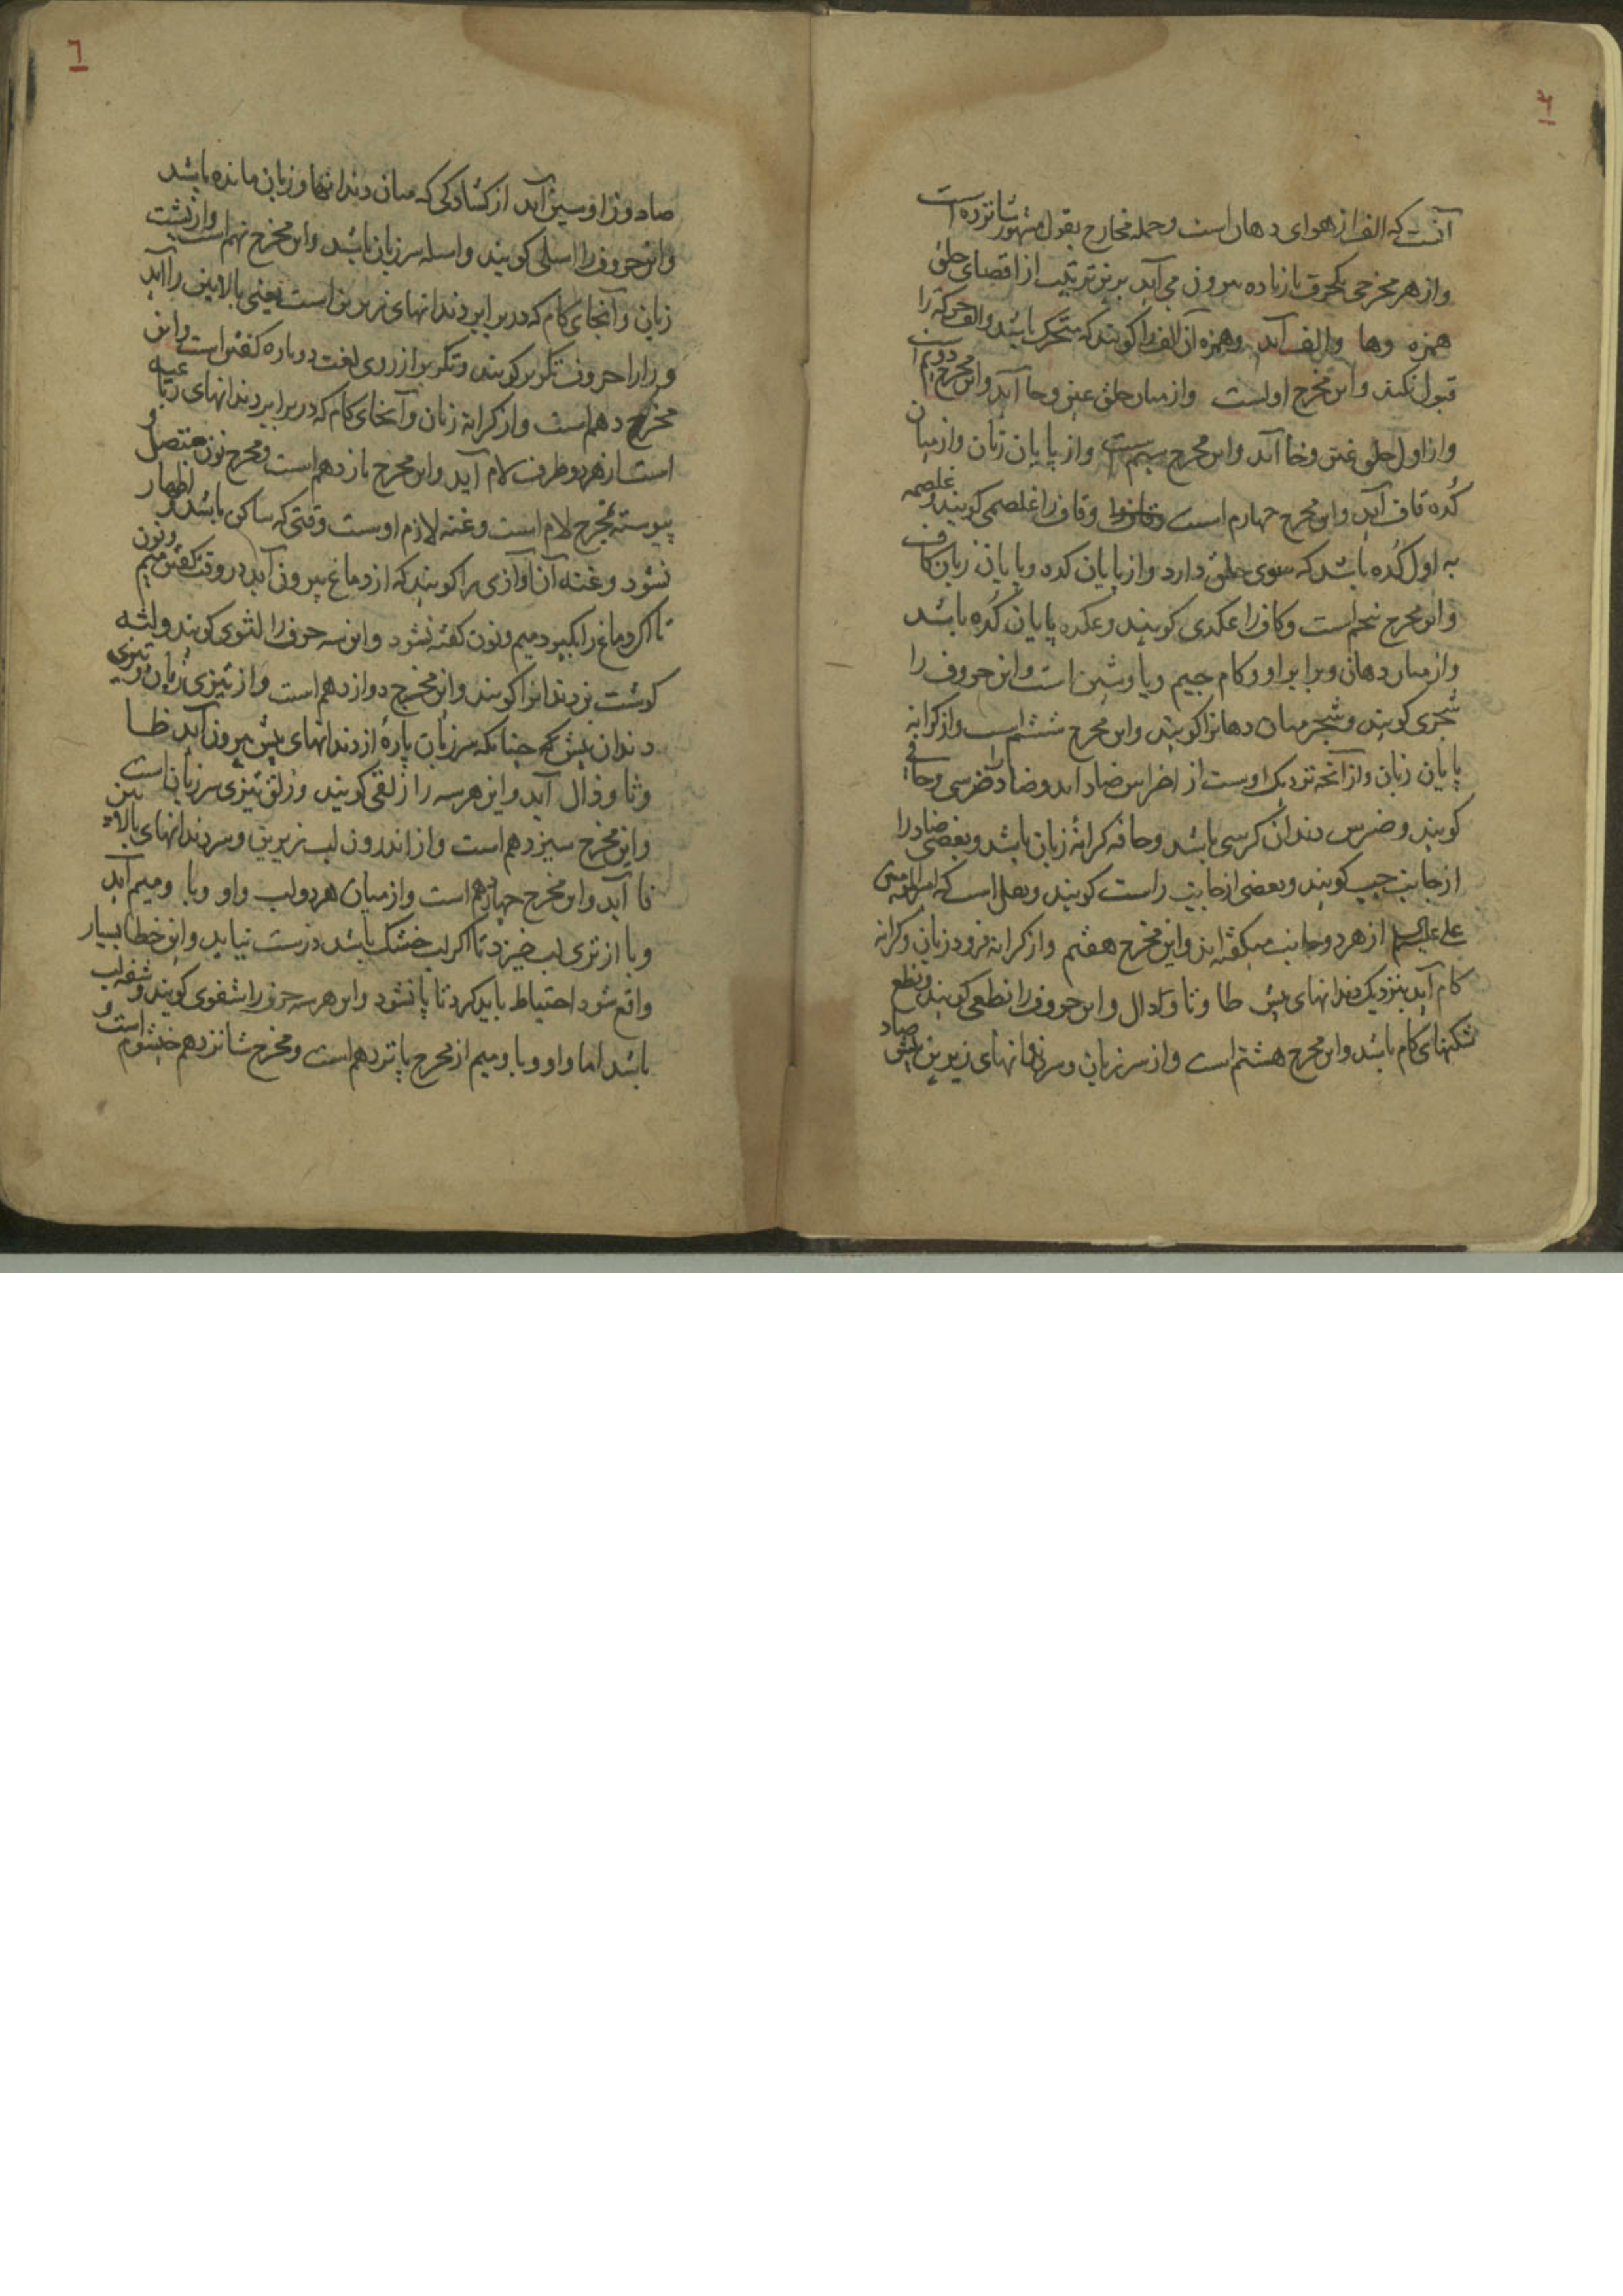 آنست که الف از هوای دهان است و جمله مخارج بقول مشهور شانزده است
و از هر مخرجی یکحرف یا زیاده بیرون می آید برین ترتیب از اقصای حلق
همزه وها والف آید وهمزه آن الف را کویند که متحرک باشد والف حرکة را
قبول نکند و این مخرج اولست و از میان حلق عین وحا آید و این مخرج دویم است
و از اول حلق غین وخا آید و این مخرج سیم است و از پایان زبان و از میان
کُده قاف آید و این مخرج چهارم است وقاف را غلصمی کویند و غلصمه
به اول کُده باشد که سوی حلق دارد و از پایان کده و پایان زبان کاف
و این مخرج پنجم است وکاف را عکدی کویند وعکده پایان کُده باشد
و از میان دهان و برابر او و کام جیم ویا وشین است و این حروف را
شجری کویند و شجر میان دهانرا کویند و این مخرج ششم است و از کرانه
پایان زبان و از آنچه نزدیک اوست از اضراس ضاد آید و ضاد را ضرسی و حافی
کویند و ضرس دندان کرسی باشد و حافه کرانۀ زبان باشد و بعضی ضاد را
از جانب چپ کویند و بعضی از جانب راست کویند و نقل است که امیرالمؤمنین
علی علیه السلم از هر دو جانب میکفته اند و این مخرج هفتم و از کرانه فرود زبان و کرانه
کام آید بنزدیک دندانهای پیش طا و تا و دال و این حروف را نطعی کویند و نطع
شکنهای کام باشد و این مخرج هشتم است و از سر زبان و سر دندانهای زیرین پیش صاد
٦
صاد و زا و سین آید از کشادکی که میان دندانها و زبان مانده باشد
و این حروف را اسلی کویند و اسله سر زبان باشد و این مخرج نهم است و از پشت
زبان و آنجای کام که در برابر دندانهای زیرین است یعنی بالایین را آید
و را را حروف تکریر کویند و تکریر از روی لغت دوباره کفتن است و این
مخرج دهم است و از کرانه زبان و آنجای کام که در برابر دندانهای رباعیه
است از هر دو طرف لام آید و این مخرج یازدهم است و مخرج نون متصل و
پیوسته بمخرج لام است و غنه لازم اوست وقتی که ساکن باشد و اظهار
نشود و غنه آن آوازی را کویند که از دماغ بیرون آید در وقت کفتن میم و نون
تا اکر دماغ را بگیرد میم و نون کفته نشود و این سه حرف را لثوی کویند و لثه
کوشت بن دندانرا کویند و این مخرج دوازدهم است و از تیزی زبان و تیزی
دندان پیش که چنانکه سر زبان پارۀ از دندانهای پیش بیرون آید ظا
و ثا و ذال آید و این هر سه را ذلقی کویند و ذلق تیزی سر زبان است
و این مخرج سیزدهم است و از اندرون لب زیرین و سر دندانهای بالایین
فا آید و این مخرج چهاردهم است و از میان هر دو لب واو وبا ومیم آید
وبا از تری لب خیزد تا اکر لب خشک باشد درست نیاید و این خطا بسیار
واقع شود احتیاط باید کرد تا پا نشود و این هر سه حرف را شفوی کویند و شفه لب
باشد اما واو وبا ومیم از مخرج پانزدهم است و مخرج شانزدهم خیشوم است و